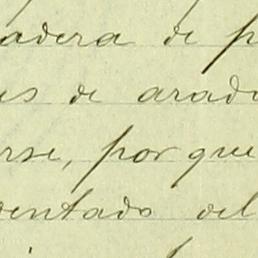 adera de p
us de arad
rse, por que
entado del